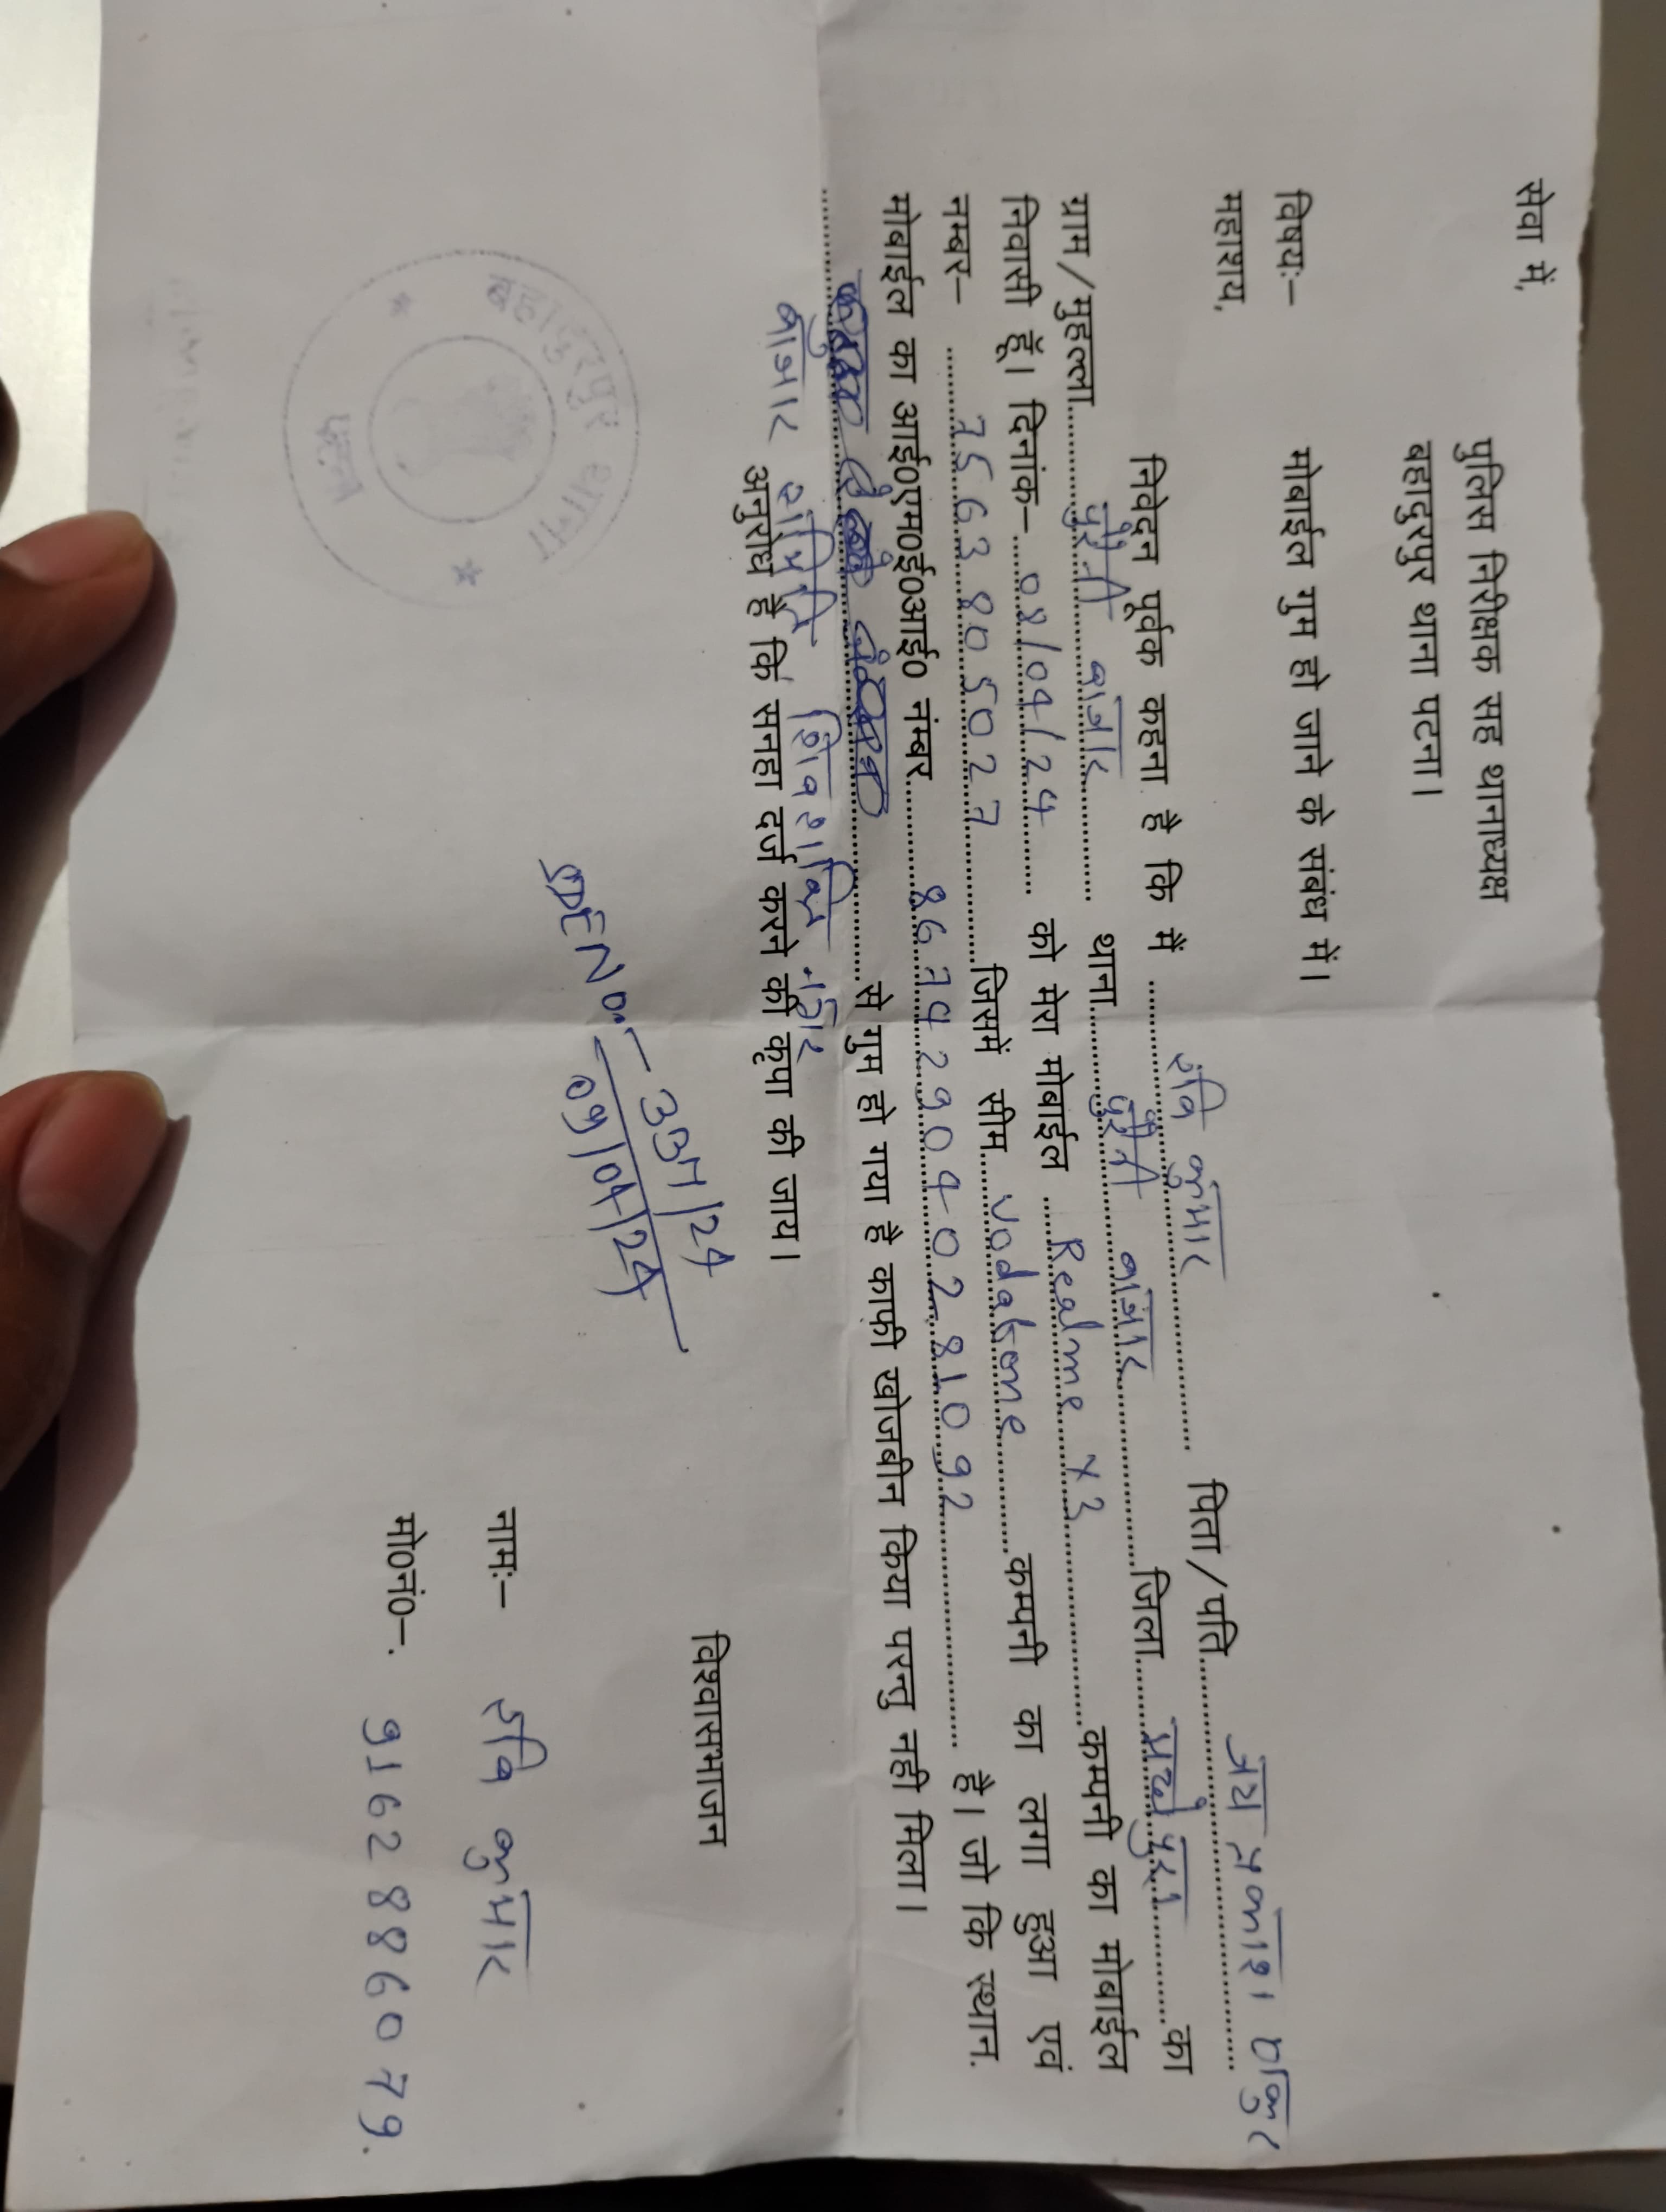 सेवा में,
पुलिस निरीक्षक सह थानाध्यक्ष
बहादुरपुर थाना पटना।
विषयः– मोबाईल गुम हो जाने के संबंध में।
महाशय,
निवेदन पूर्वक कहना है कि मैं रवि कुमार पिता/पति जय प्रकाश ठाकुर
ग्राम/मुहल्ला पुरैनी बाजार थाना पुरैनी बाजार जिला मधेपुरा का
निवासी हूॅ। दिनांक– 08/04/24 को मेरा मोबाईल Realme X3 कम्पनी का मोबाईल
नम्बर– 7563805027 जिसमें सीम Vodafone कम्पनी का लगा हुआ एवं
मोबाईल का आई0एम0ई0आई0 नंम्बर 867429040281092 है। जो कि स्थान.
से गुम हो गया है काफी खोजबीन किया परन्तु नही मिला।
बाजार समिति, शिवशक्ति नगर
अनुरोध है कि सनहा दर्ज करने की कृपा की जाय।
विश्वासभाजन
SDE NO.- 337/24
09/04/24
बहादुरपुर थाना
पटना
नामः– रवि कुमार
मो0नं0–. 9162886079.